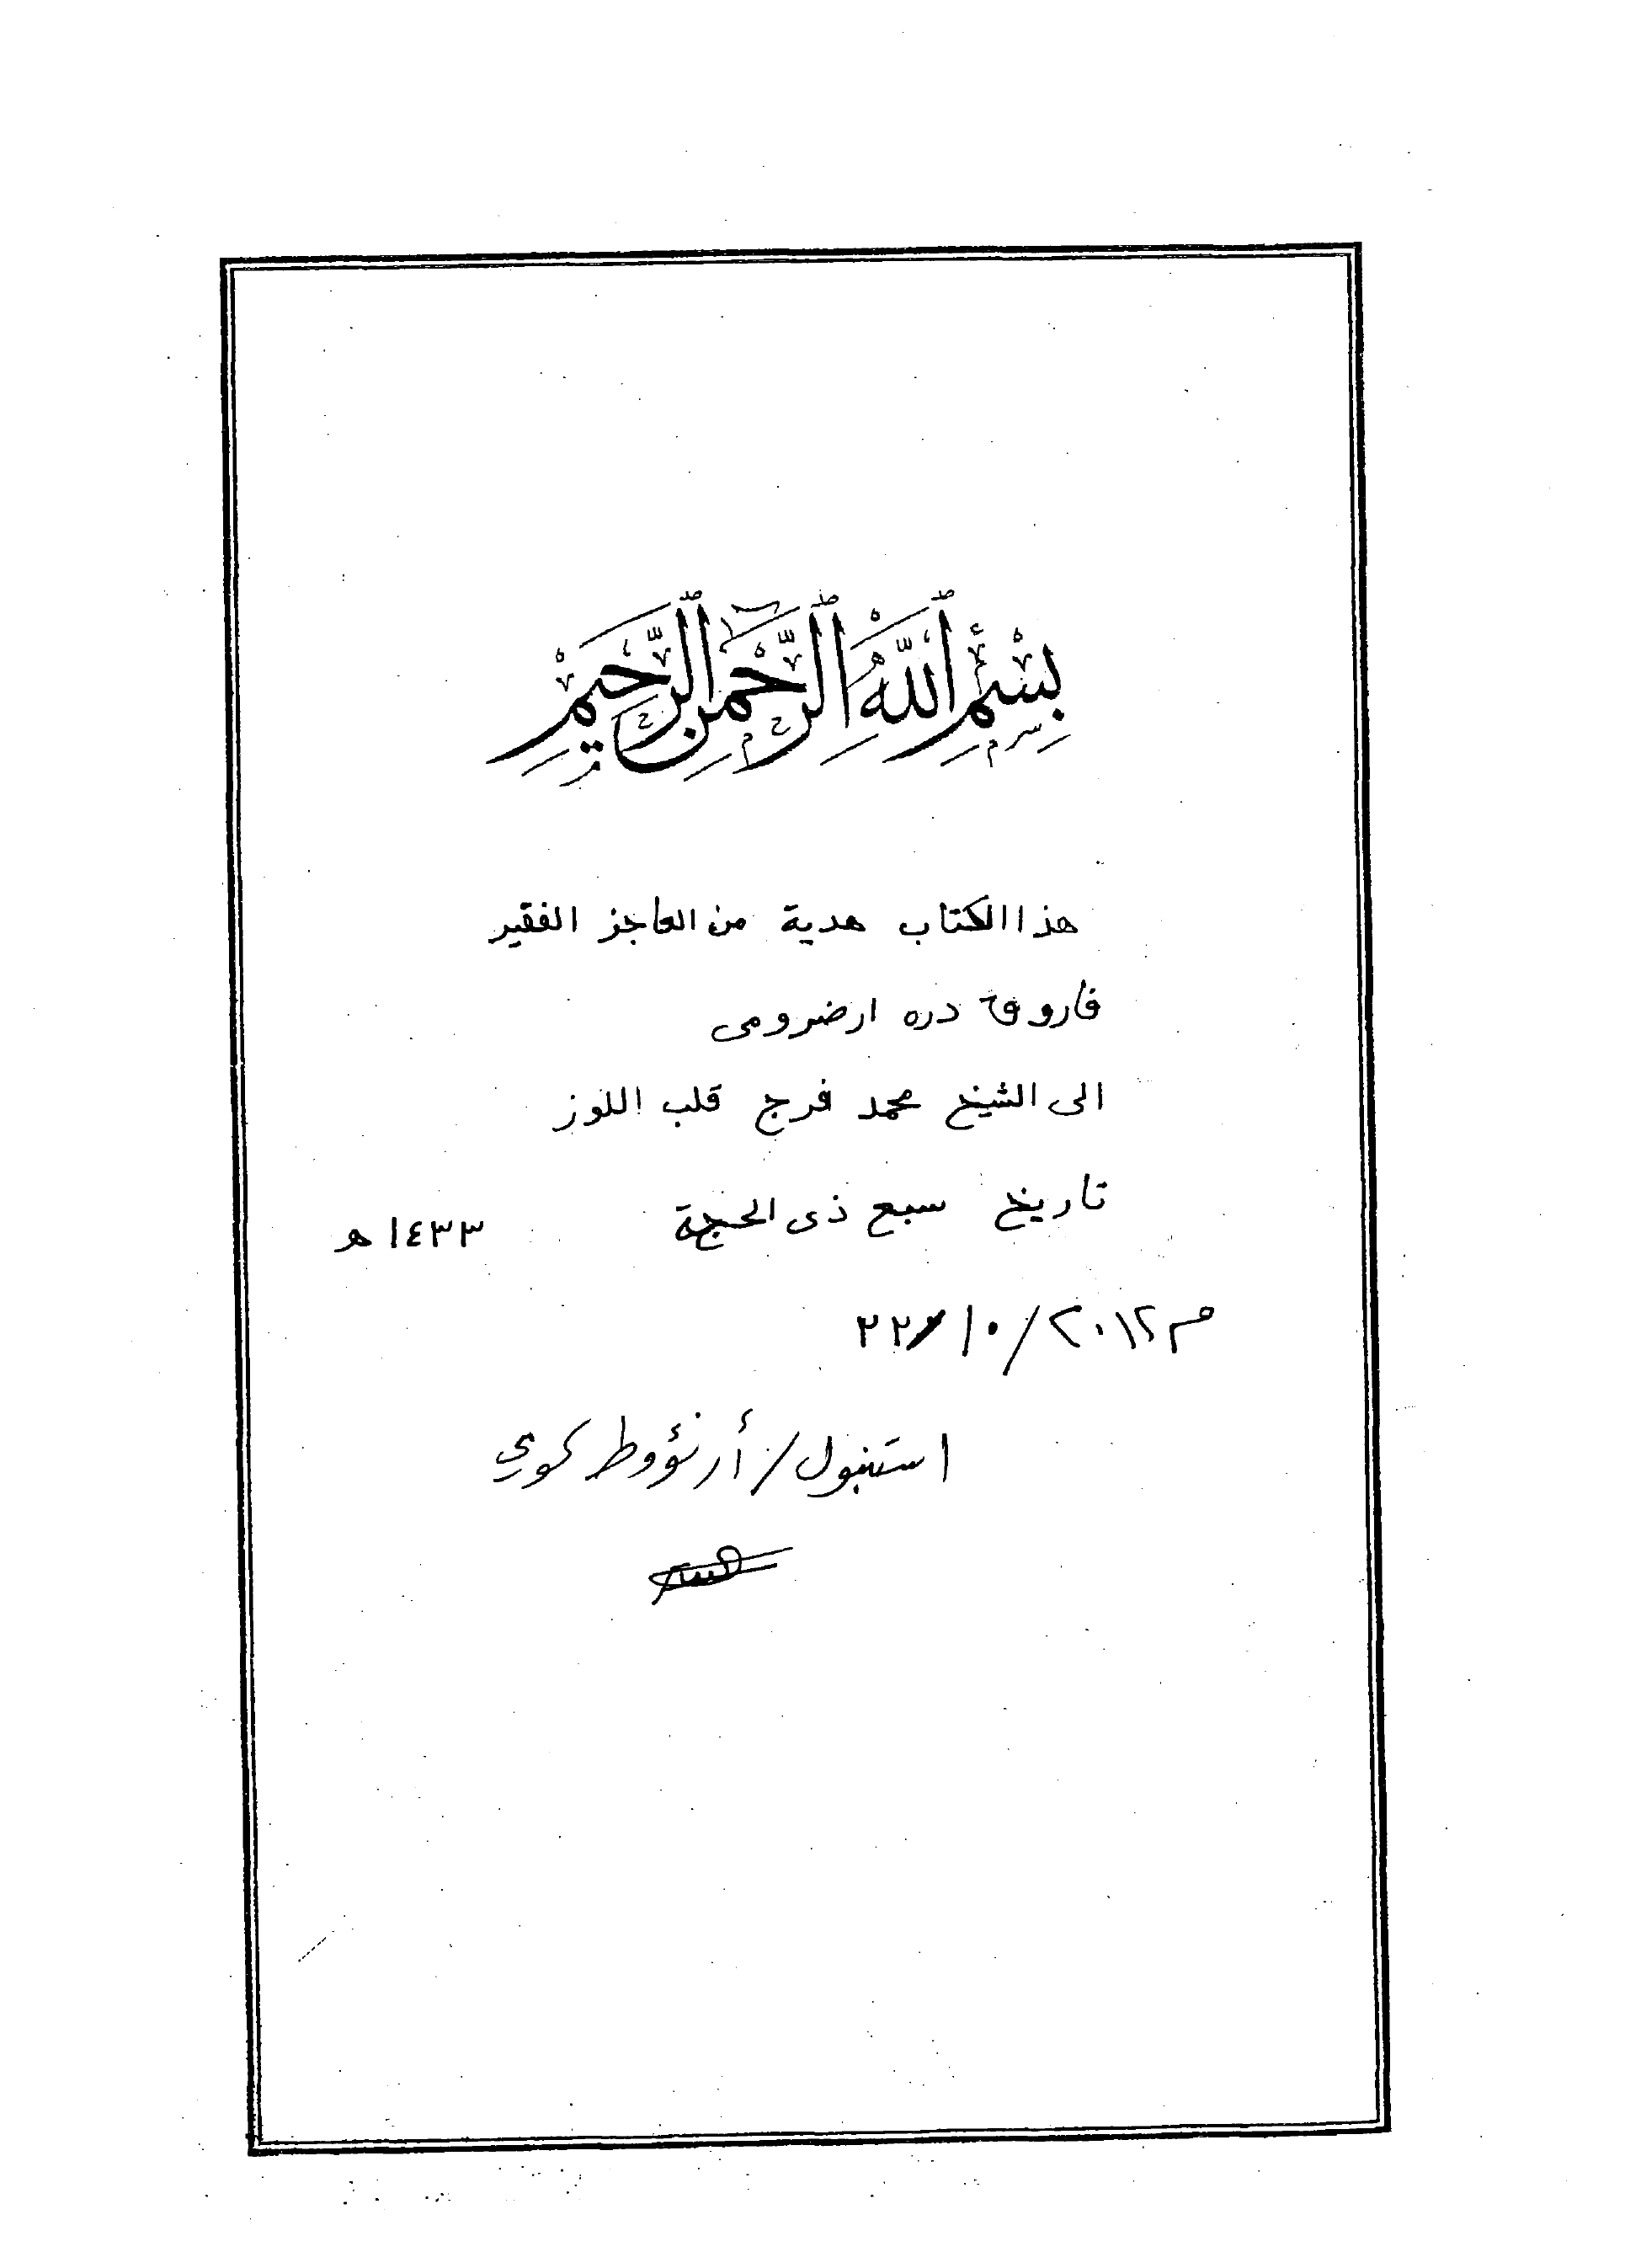 بِسْمِ اللَّهِ الرَّحْمٰنِ الرَّحِيمِ
هذا الكتاب هدية من العاجز الفقير
فاروق دره ارضرومى
الى الشيخ محمد فرج قلب اللوز
تاريخ سبع ذى الحجة ١٤٣٣ هـ
٢٢/١٠/٢٠١٢ م
استنبول / أرنؤوط كوي